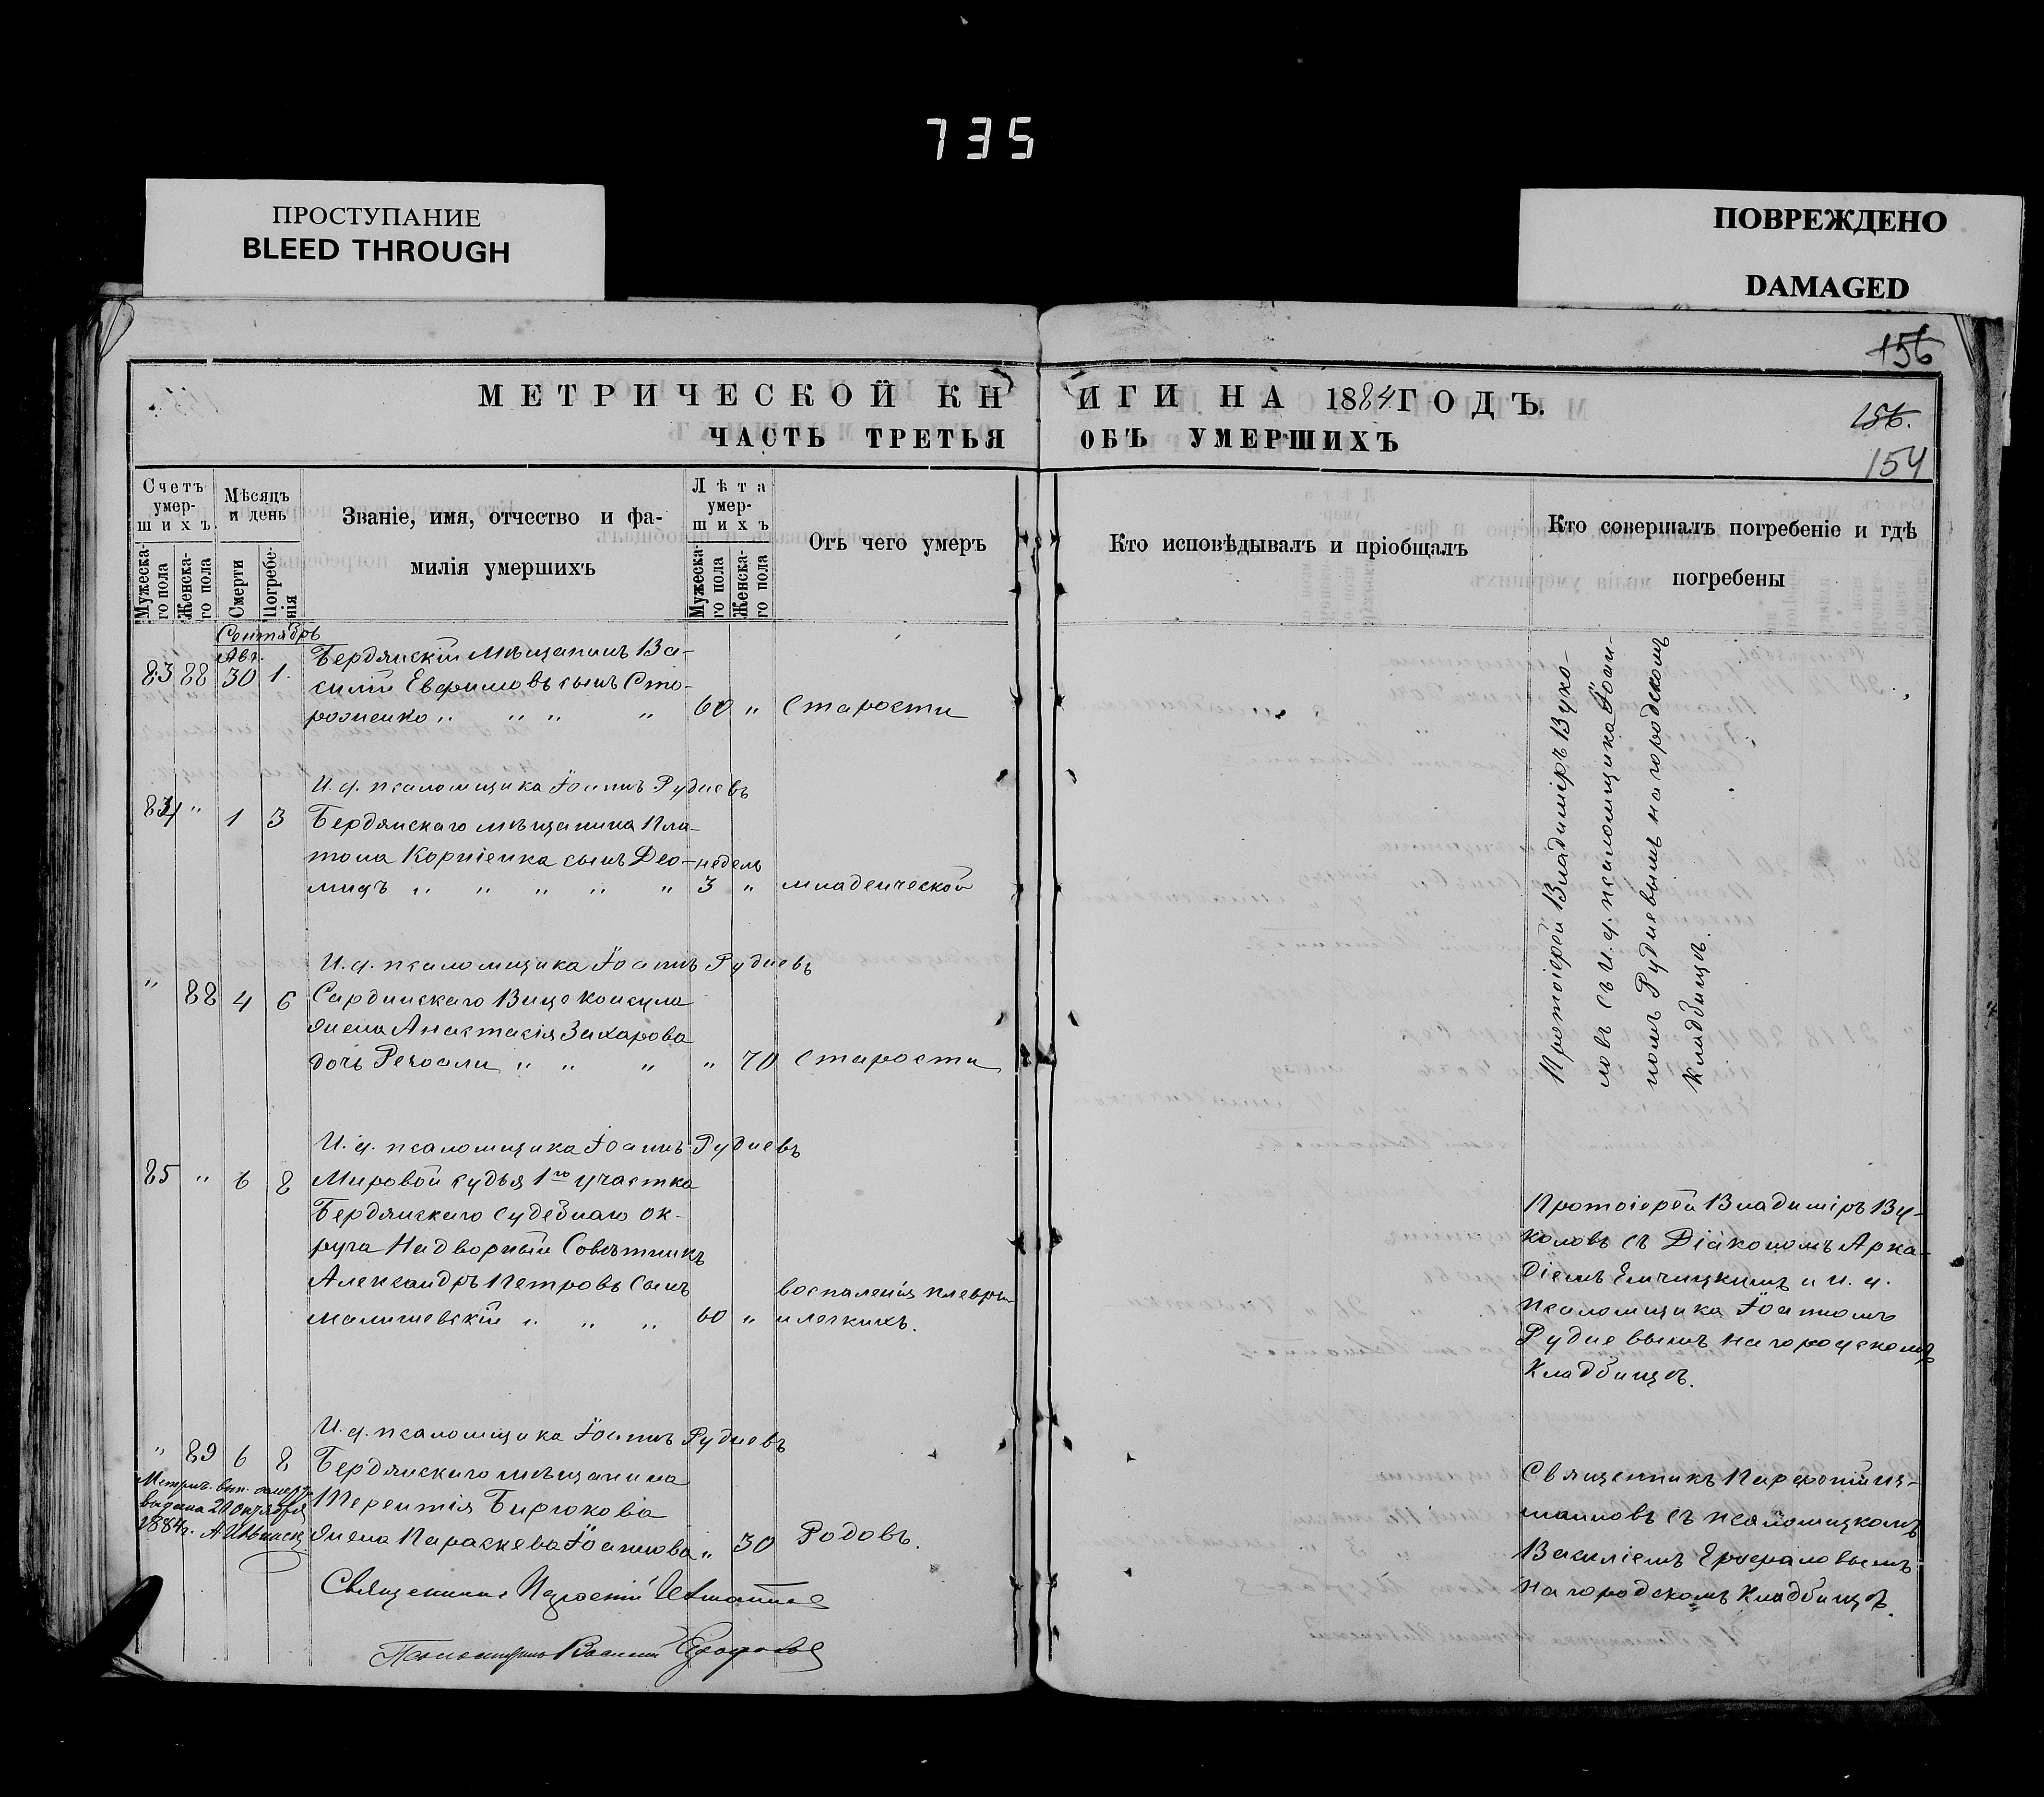 735
ПРОСТУПАНИЕ
BLEED THROUGH
ПОВРЕЖДЕНО
DAMAGED
156
156.
154
МЕТРИЧЕСКОЙ КНИГИ НА 1884 ГОДЪ.
ЧАСТЬ ТРЕТЬЯ ОБЪ УМЕРШИХЪ
Счетъ умер-
шихъ
Мужеска-
го пола
Женска-
го пола
Мѣсяцъ
и день
Смерти
Погребе-
нія
Званіе, имя, отчество и фа-
милія умершихъ
Лѣта
умер-
шихъ
Мужеска-
го пола
Женска-
го пола
Отъ чего умеръ
Кто исповѣдывалъ и пріобщалъ
Кто совершалъ погребеніе и гдѣ
погребены
Сентябрь
Авг.
83 88 30 1. Бердянскій Мѣщанинъ Ва-
силій Евфимовъ сынъ Сто-
роженко " " " " 60 " Старости
И. д. псаломщика Іоаннъ Рудневъ
84 " 1 3 Бердянскаго мѣщанина Пла-
тона Корніенка сынъ Део- недель
мидъ " " " " " 3 " младенческой
И. д. псаломщика Іоаннъ Рудневъ
" 88 4 6 Сардинскаго Вице Консула
жена Анастасія Захарова
дочь " " " " 70 старости
И. д. псаломщика Іоаннъ Рудневъ
85 " 6 8 Мировой судья 1го участка
Бердянскаго судебнаго ок-
руга Надворный Совѣтникъ
Александръ Петровъ сынъ
Малишевскій " " " 60 " воспаленія плевры
и легкихъ.
И. д. псаломщика Іоаннъ Рудневъ
" 89 6 8 Бердянскаго мѣщанина
Терентія Бирюкова
жена Параскева Іоаннова " 30 Родовъ.
Метрич. вып.
выдана 20 октября
1884 г.
Священникъ
Псаломщикъ Василій
Протоіерей Владиміръ Вуко-
ловъ съ И. д. псаломщика Іоан-
номъ Рудневымъ на городскомъ
кладбищѣ.
Протоіерей Владиміръ Ву-
коловъ съ Діакономъ Арка-
діемъ и И. д.
псаломщика Іоанномъ
Рудневымъ на городскомъ
Кладбищѣ.
Священникъ
съ псаломщикомъ
Василіемъ
на городскомъ Кладбищѣ.